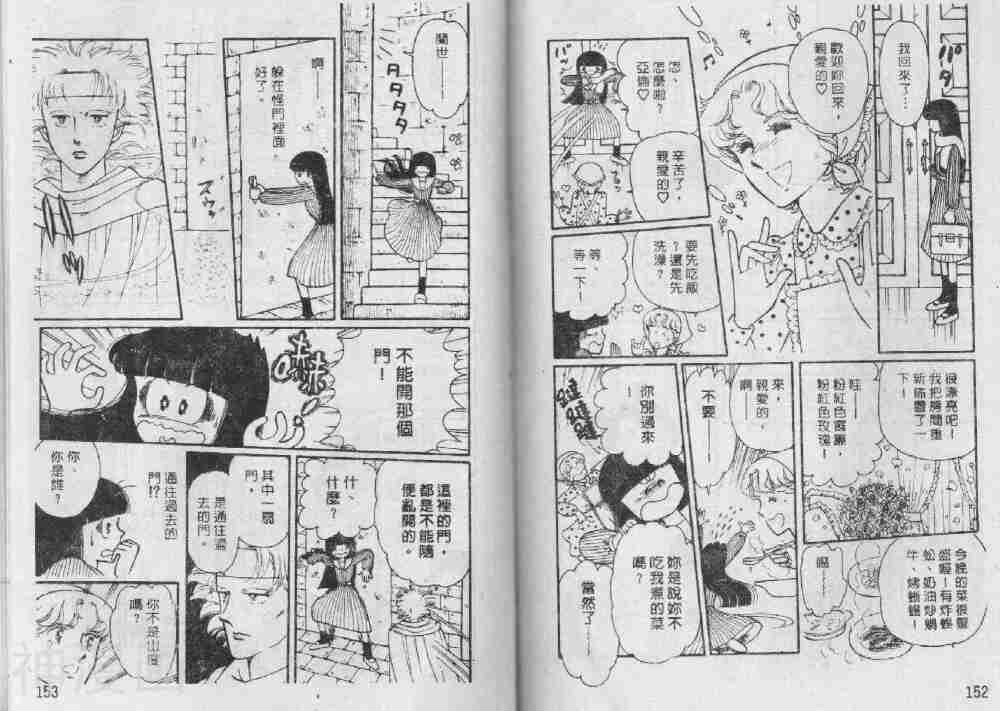 我回來了…
パタ
歡迎妳回來，
親愛的♡
怎、
怎麼啦？
亞倫♡
バッ
辛苦了，
親愛的♡
要先吃飯
？還是先
洗澡？
等、
等一下！
很漂亮吧！
我把房間重
新佈置了一
下！
哇——
粉紅色窗簾，
粉紅色玫瑰！
今晚的菜很豐
盛喔！有炸蜈
蚣、奶油炒蝸
牛、烤蜥蜴！
來，
親愛的，
啊——
不要——
你別過來
！
妳是說妳不
吃我煮的菜
嗎？
當然了——
152
タタタタ
啊，
躲在怪門裡面，
好了。
ズウッ
不能開那個
門！
這裡的門，
都是不能隨
便亂開的。
什、
什麼？
其中一扇
門，
是通往過
去的門。
通往過去的
門!?
你、
你是誰？
你不是山度
嗎？
153